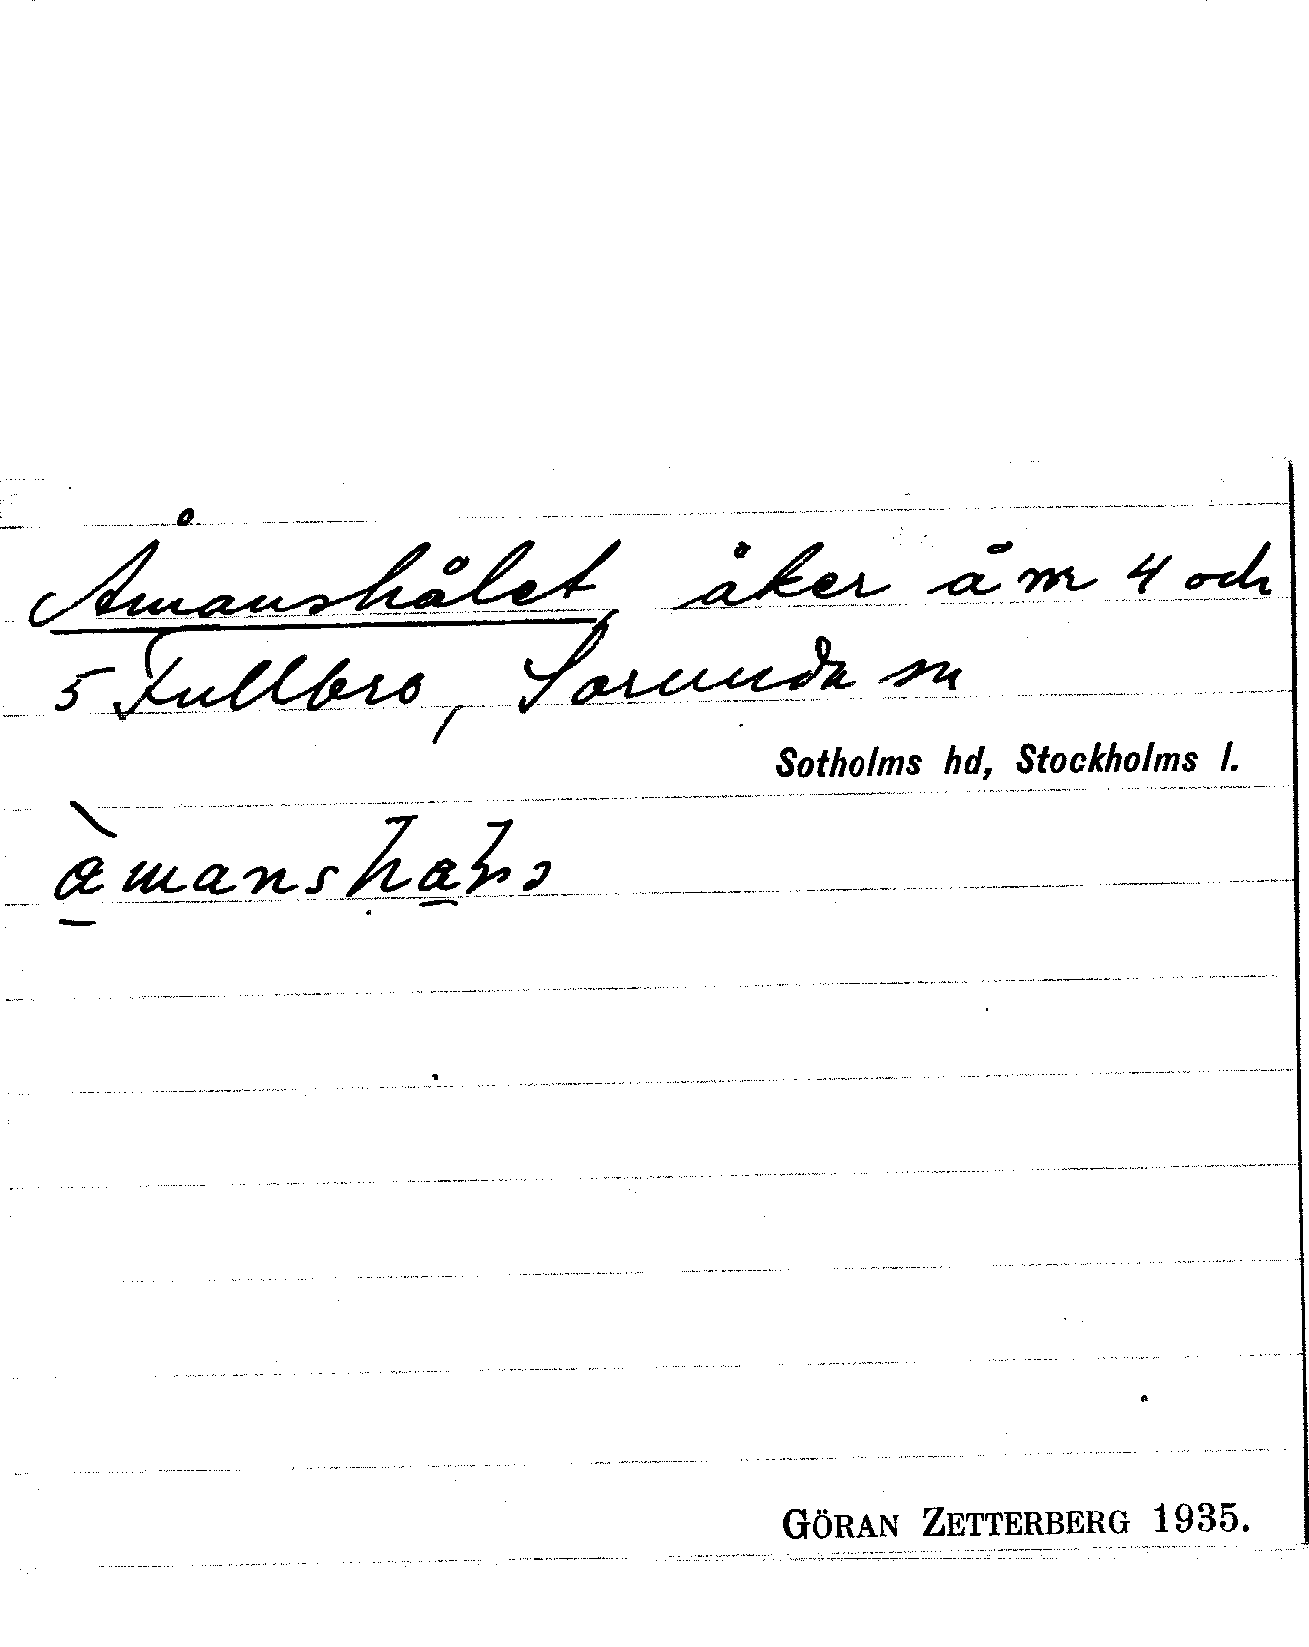 Åmanshålet, åker å nr 4 och
5 Fullbro, Sorunda sn
Sotholms hd, Stockholms l.
GÖRAN ZETTERBERG 1935.